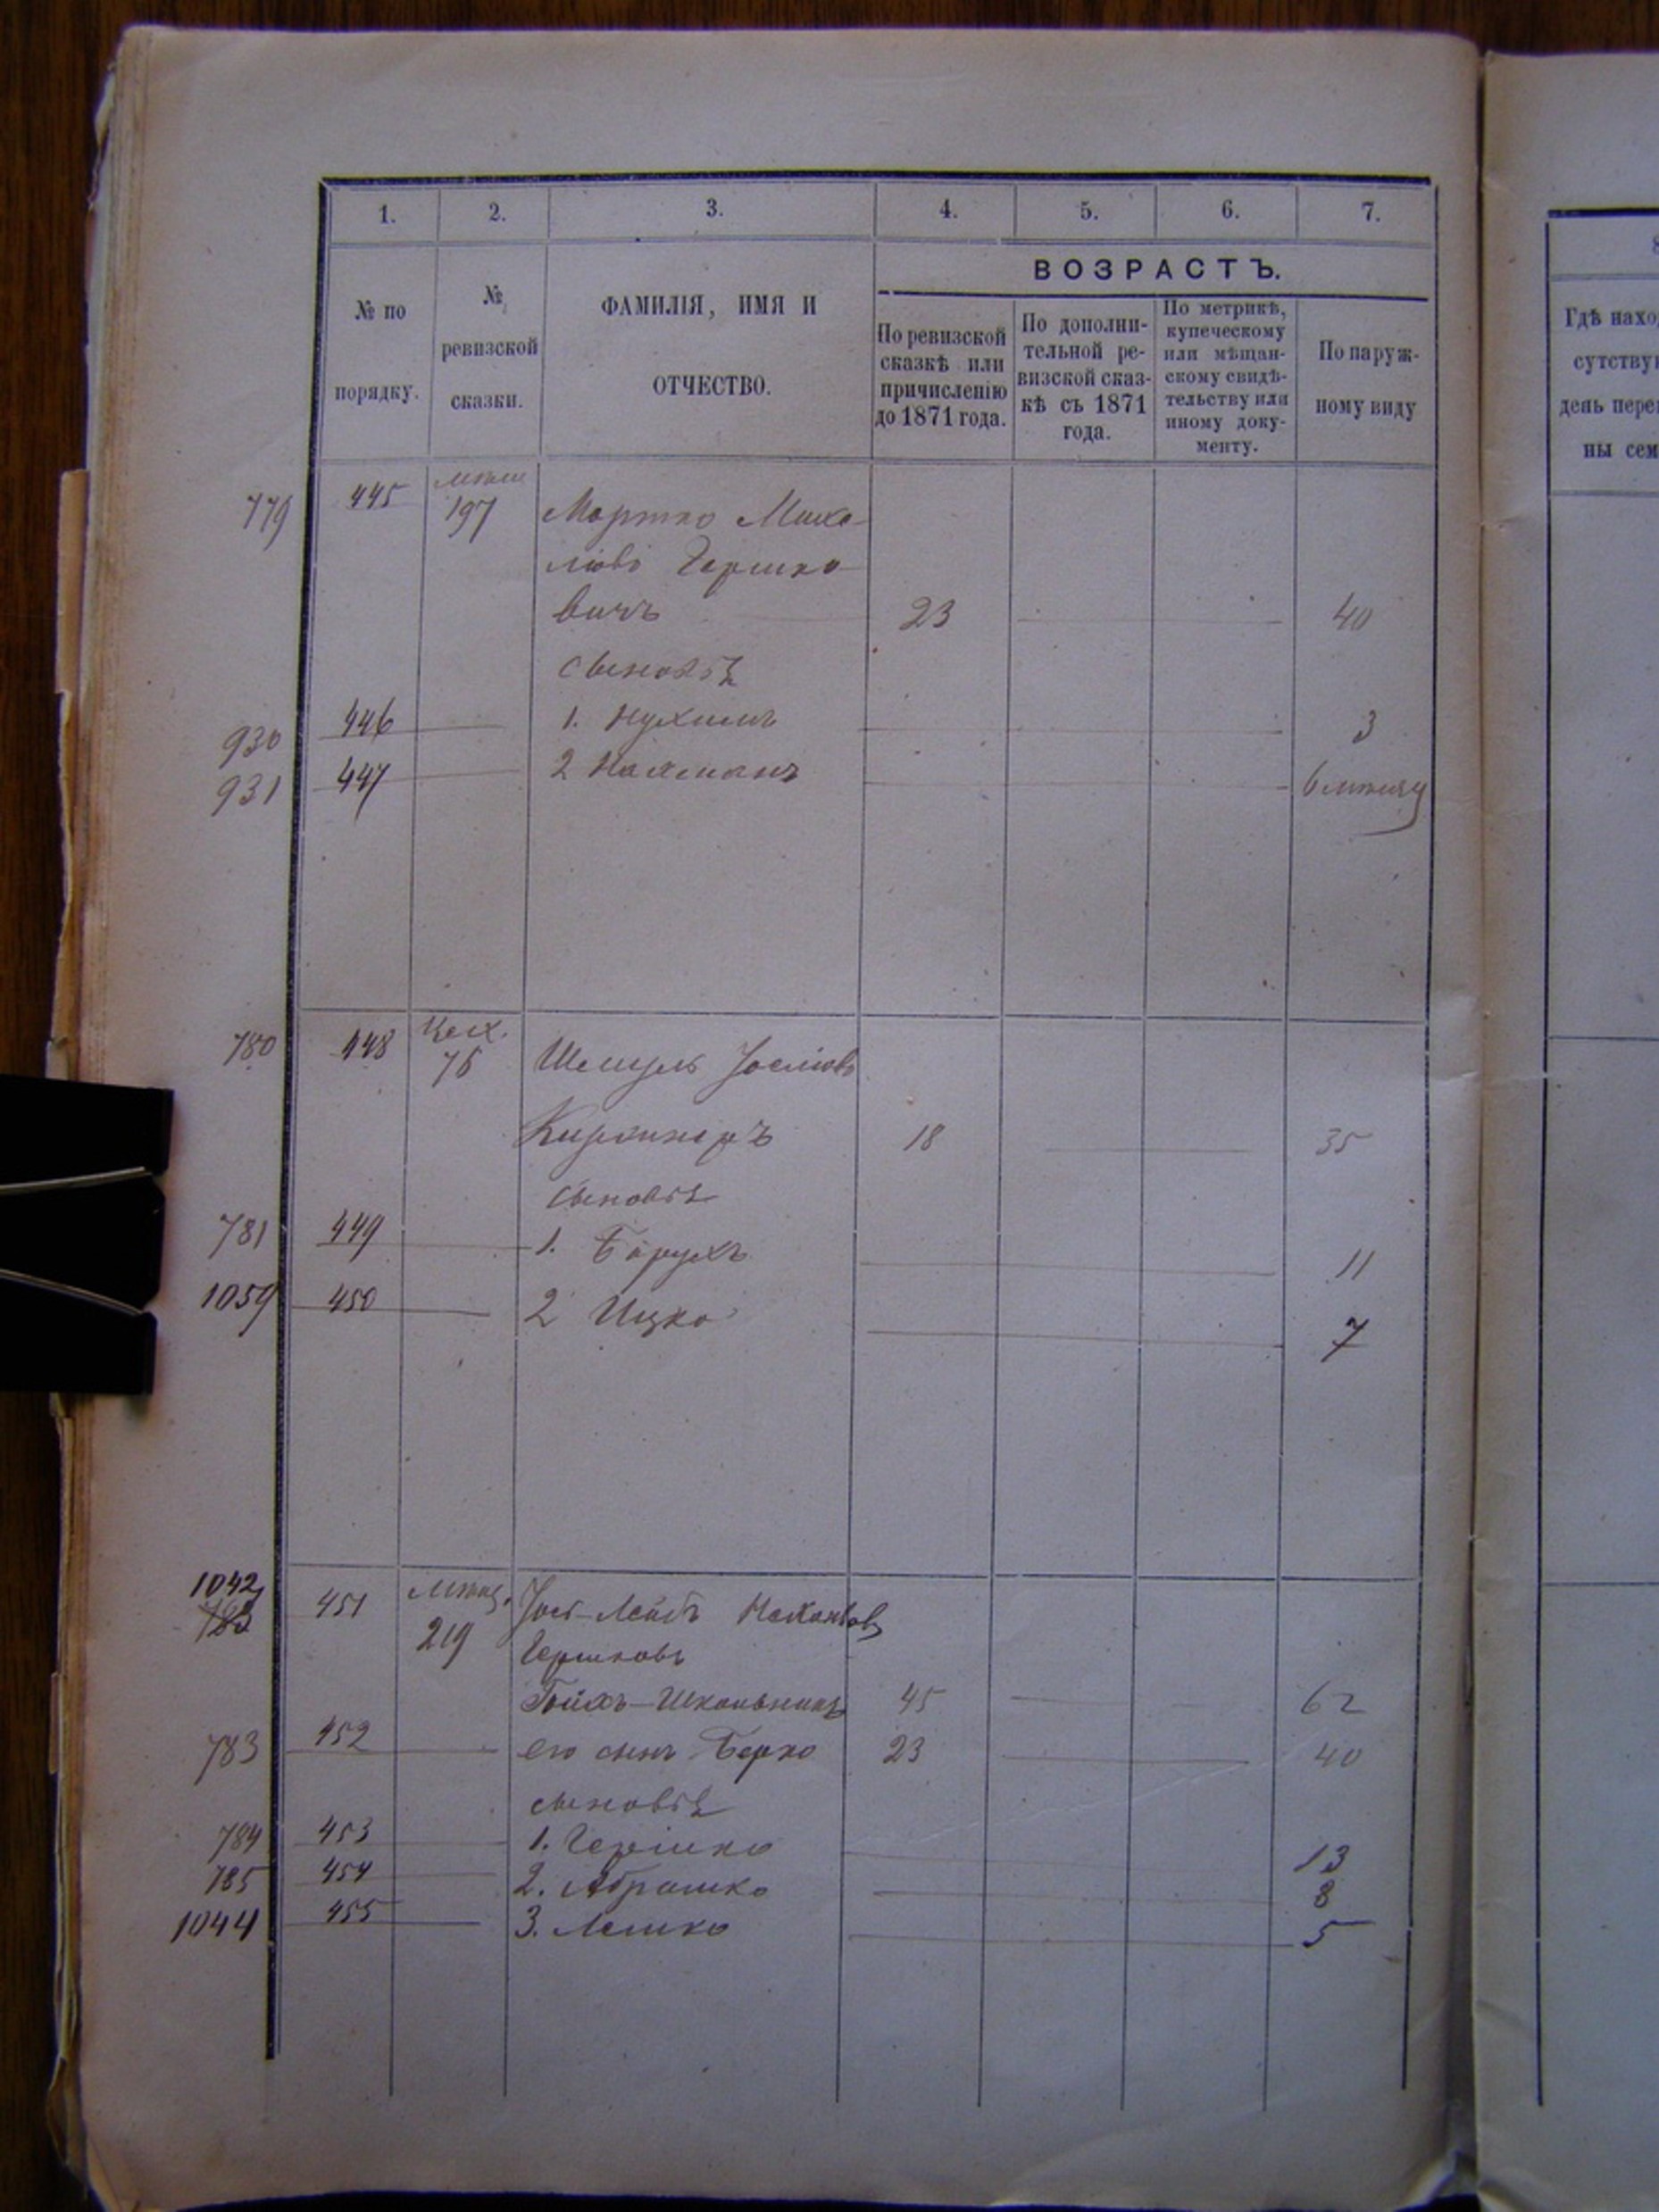 1. 2. 3. 4. 5. 6. 7.
ВОЗРАСТЪ.
№ по
порядку.
№
ревизской
сказки.
ФАМИЛІЯ, ИМЯ И
ОТЧЕСТВО.
По ревизской
сказкѣ или
причисленію
до 1871 года.
По дополни-
тельной ре-
визской сказ-
кѣ съ 1871
года.
По метрикѣ,
купеческому
или мѣщан-
скому свидѣ-
тельству или
иному доку-
менту.
По наруж-
ному виду
8
Гдѣ нахо
сутству
день пере
ны сем
779 445 197
Чершко-
вичъ 23 40
сыновья
930 446 1. Нухимъ 3
931 447 2 Нахманъ 6
780 448 Цех.
76 Шмуль
18 35
сыновья
781 449 1. Борухъ 11
1059 450 2 Ицко 7
1042
783 451 мѣщ. Лейбъ
219 Гершковъ
Школьникъ 45 62
783 452 его сынъ Берко 23 40
сыновья
784 453 1. Гершко 13
785 454 2. Абрашко 8
1044 455 3. 5